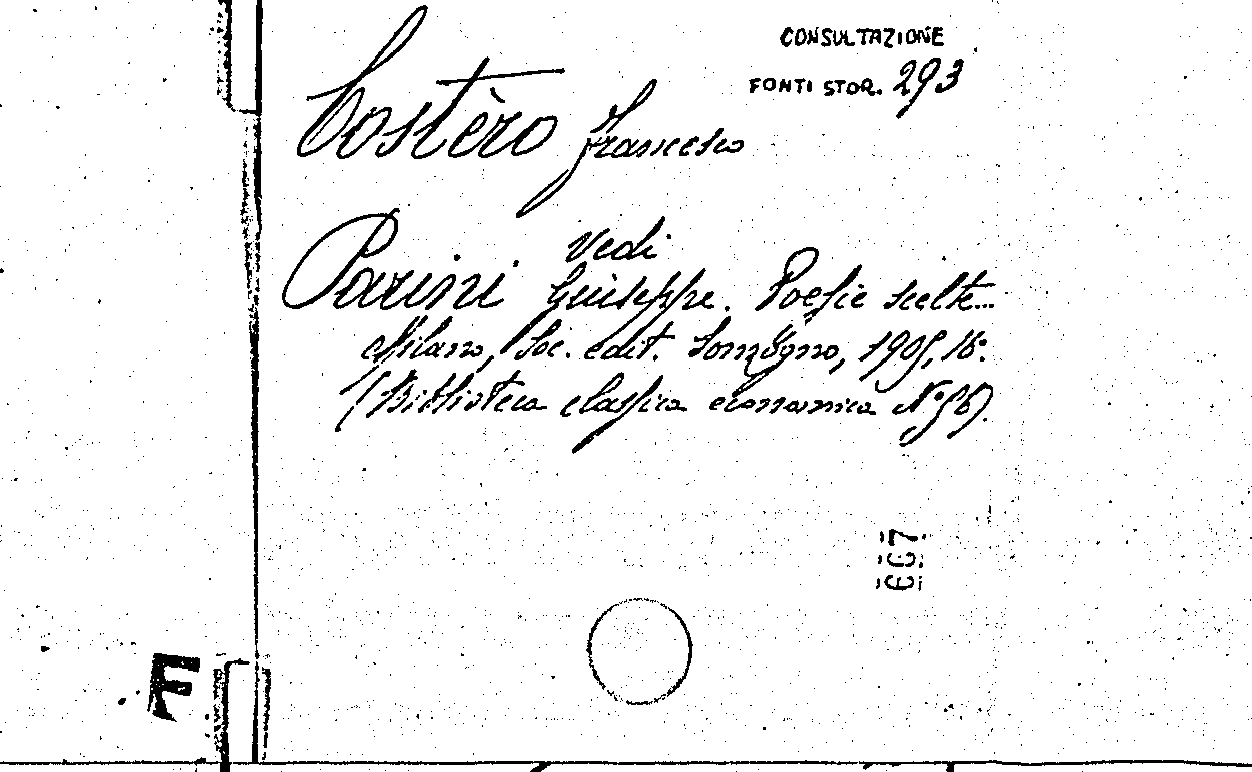 CONSULTAZIONE
FONTI STOR. 293
Costèro Francesco
Vedi
Parini Giuseppe. Poesie scelte...
Milano, Soc. edit. Sonzogno, 1905, 16°.
(Biblioteca classica economica N° 56).
667
F